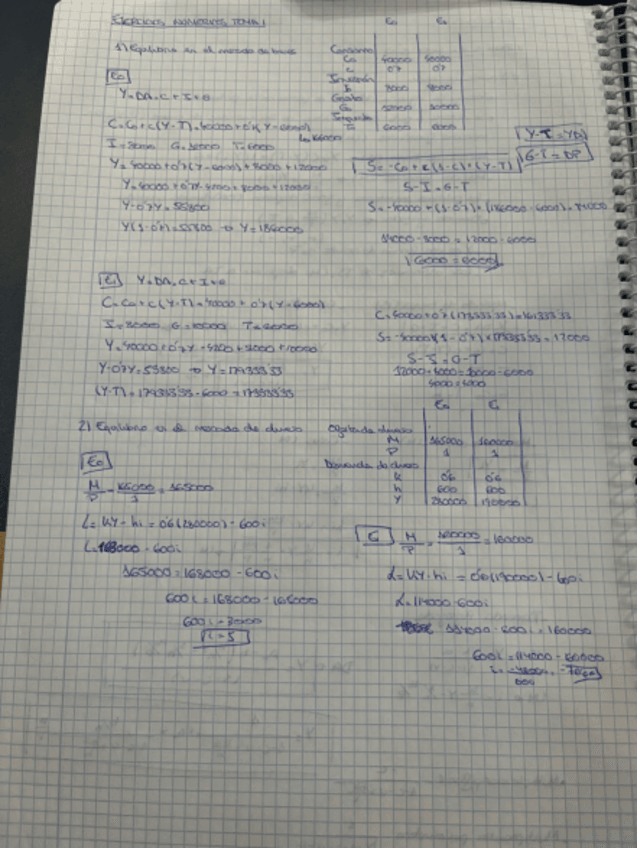 EJERCICIOS NUMÉRICOS TEMA 1
E0 E1
1) Equilibrio en el mercado de bienes
Consumo
C0 40000 50000
c 0'7 0'7
Inversión
I 8000 8000
Gasto
G0 12000 10000
Impuestos
T 6000 6000
E0
Y=DA=C+I+G
C=C0+c(Y-T)=40000+0'7(Y-6000)
I=8000 G=12000 T=6000
Y=40000+0'7(Y-6000)+8000+12000
Y=40000+0'7Y-4200+8000+12000
Y-0'7Y=55800
Y(1-0'7)=55800 → Y=186000
Y-T=YD
G-T=DP
S=-C0+(1-c)(Y-T)
S-I=G-T
S=-40000+(1-0'7)(186000-6000)=14000
14000-8000=12000-6000
6000=6000
E1 Y=DA=C+I+G
C=C0+c(Y-T)=40000+0'7(Y-6000)
I=8000 G=10000 T=6000
Y=40000+0'7Y-4200+8000+10000
Y-0'7Y=53800 → Y=179333'33
(Y-T)=179333'33-6000=173333'33
C=40000+0'7(173333'33)=161333'33
S=-40000+(1-0'7)173333'33=12000
S-I=G-T
12000-8000=10000-6000
4000=4000
2) Equilibrio en el mercado de dinero
E0 E1
Oferta de dinero
M 165000 160000
P 1 1
Demanda de dinero
k 0'6 0'6
h 600 600
Y 280000 190000
E0
M/P=165000/1=165000
L=kY-hi=0'6(280000)-600i
L=168000-600i
165000=168000-600i
600i=168000-165000
600i=3000
i=5
E1 M/P=160000/1=160000
L=kY-hi=0'6(190000)-600i
L=114000-600i
114000-600i=160000